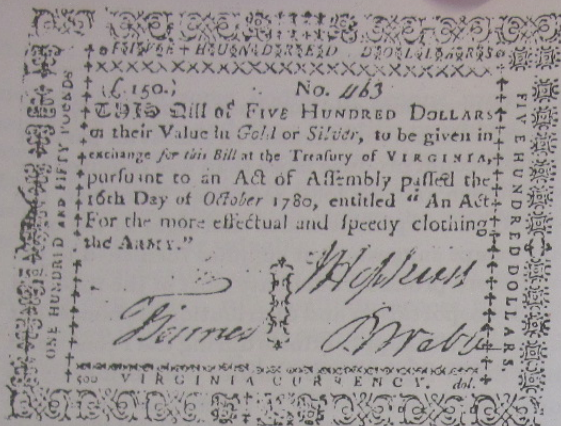 FIVE HUNDRED DOLLARS
(£.150.) No. 463
THIS Bill of FIVE HUNDRED DOLLARS
or their Value in Gold or Silver, to be given in
exchange for this Bill at the Treasury of VIRGINIA,
pursuant to an Act of Assembly passed the
16th Day of October 1780, entitled “An Act
For the more effectual and speedy clothing
the ARMY.”
J Hopkins
B Webb
500 VIRGINIA CURRENCY. dol.
ONE HUNDRED AND FIFTY POUNDS
FIVE HUNDRED DOLLARS.